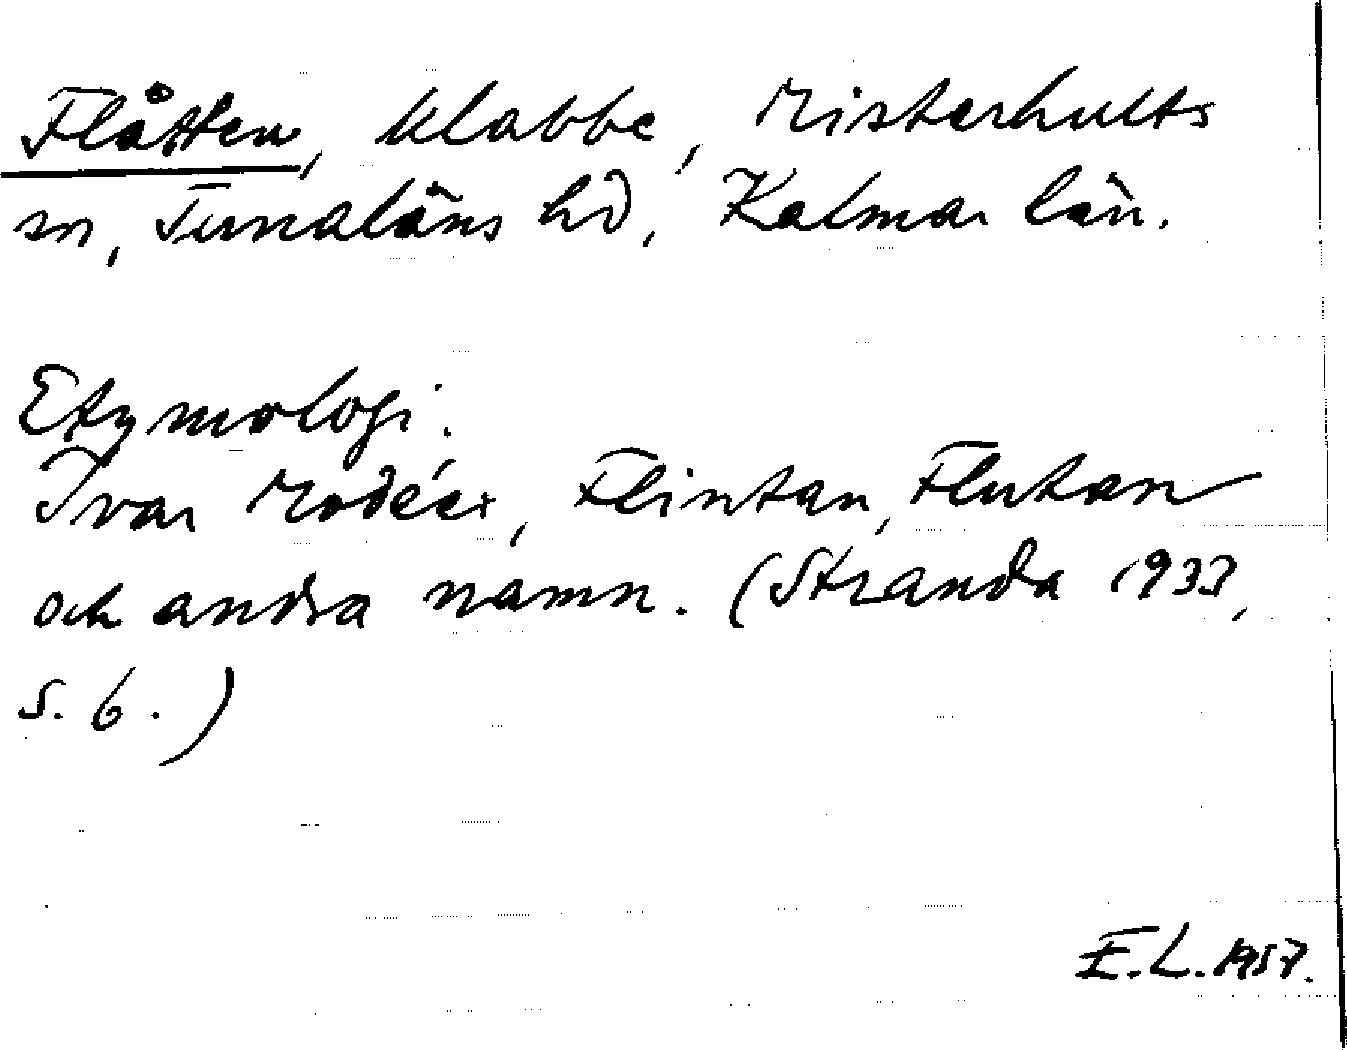 Flåtten, klabbe, Misterhults
sn, Tunaläns hd, Kalmar län.
Etymologi:
Ivar Modéer, Flintan, Flutan
och andra namn. (Stranda 1933,
s. 6.)
E.L. 1957.